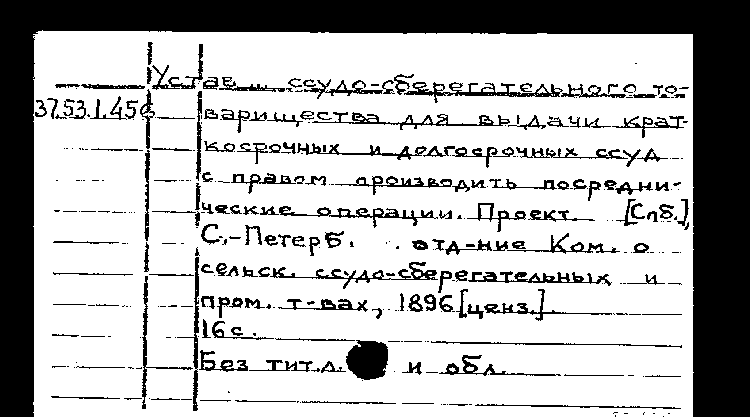 Устав ... ссудо-сберегательного то-
37.53.1.456 варищества для выдачи крат
косрочных и долгосрочных ссуд
с правом производить посредни-
ческие операции. Проект. [Спб.],
С.-Петерб. отд-ние Ком. о
сельск. ссудо-сберегательных и
пром. т-вах, 1896 [ценз.].
16 с.
Без тит.л. и обл.